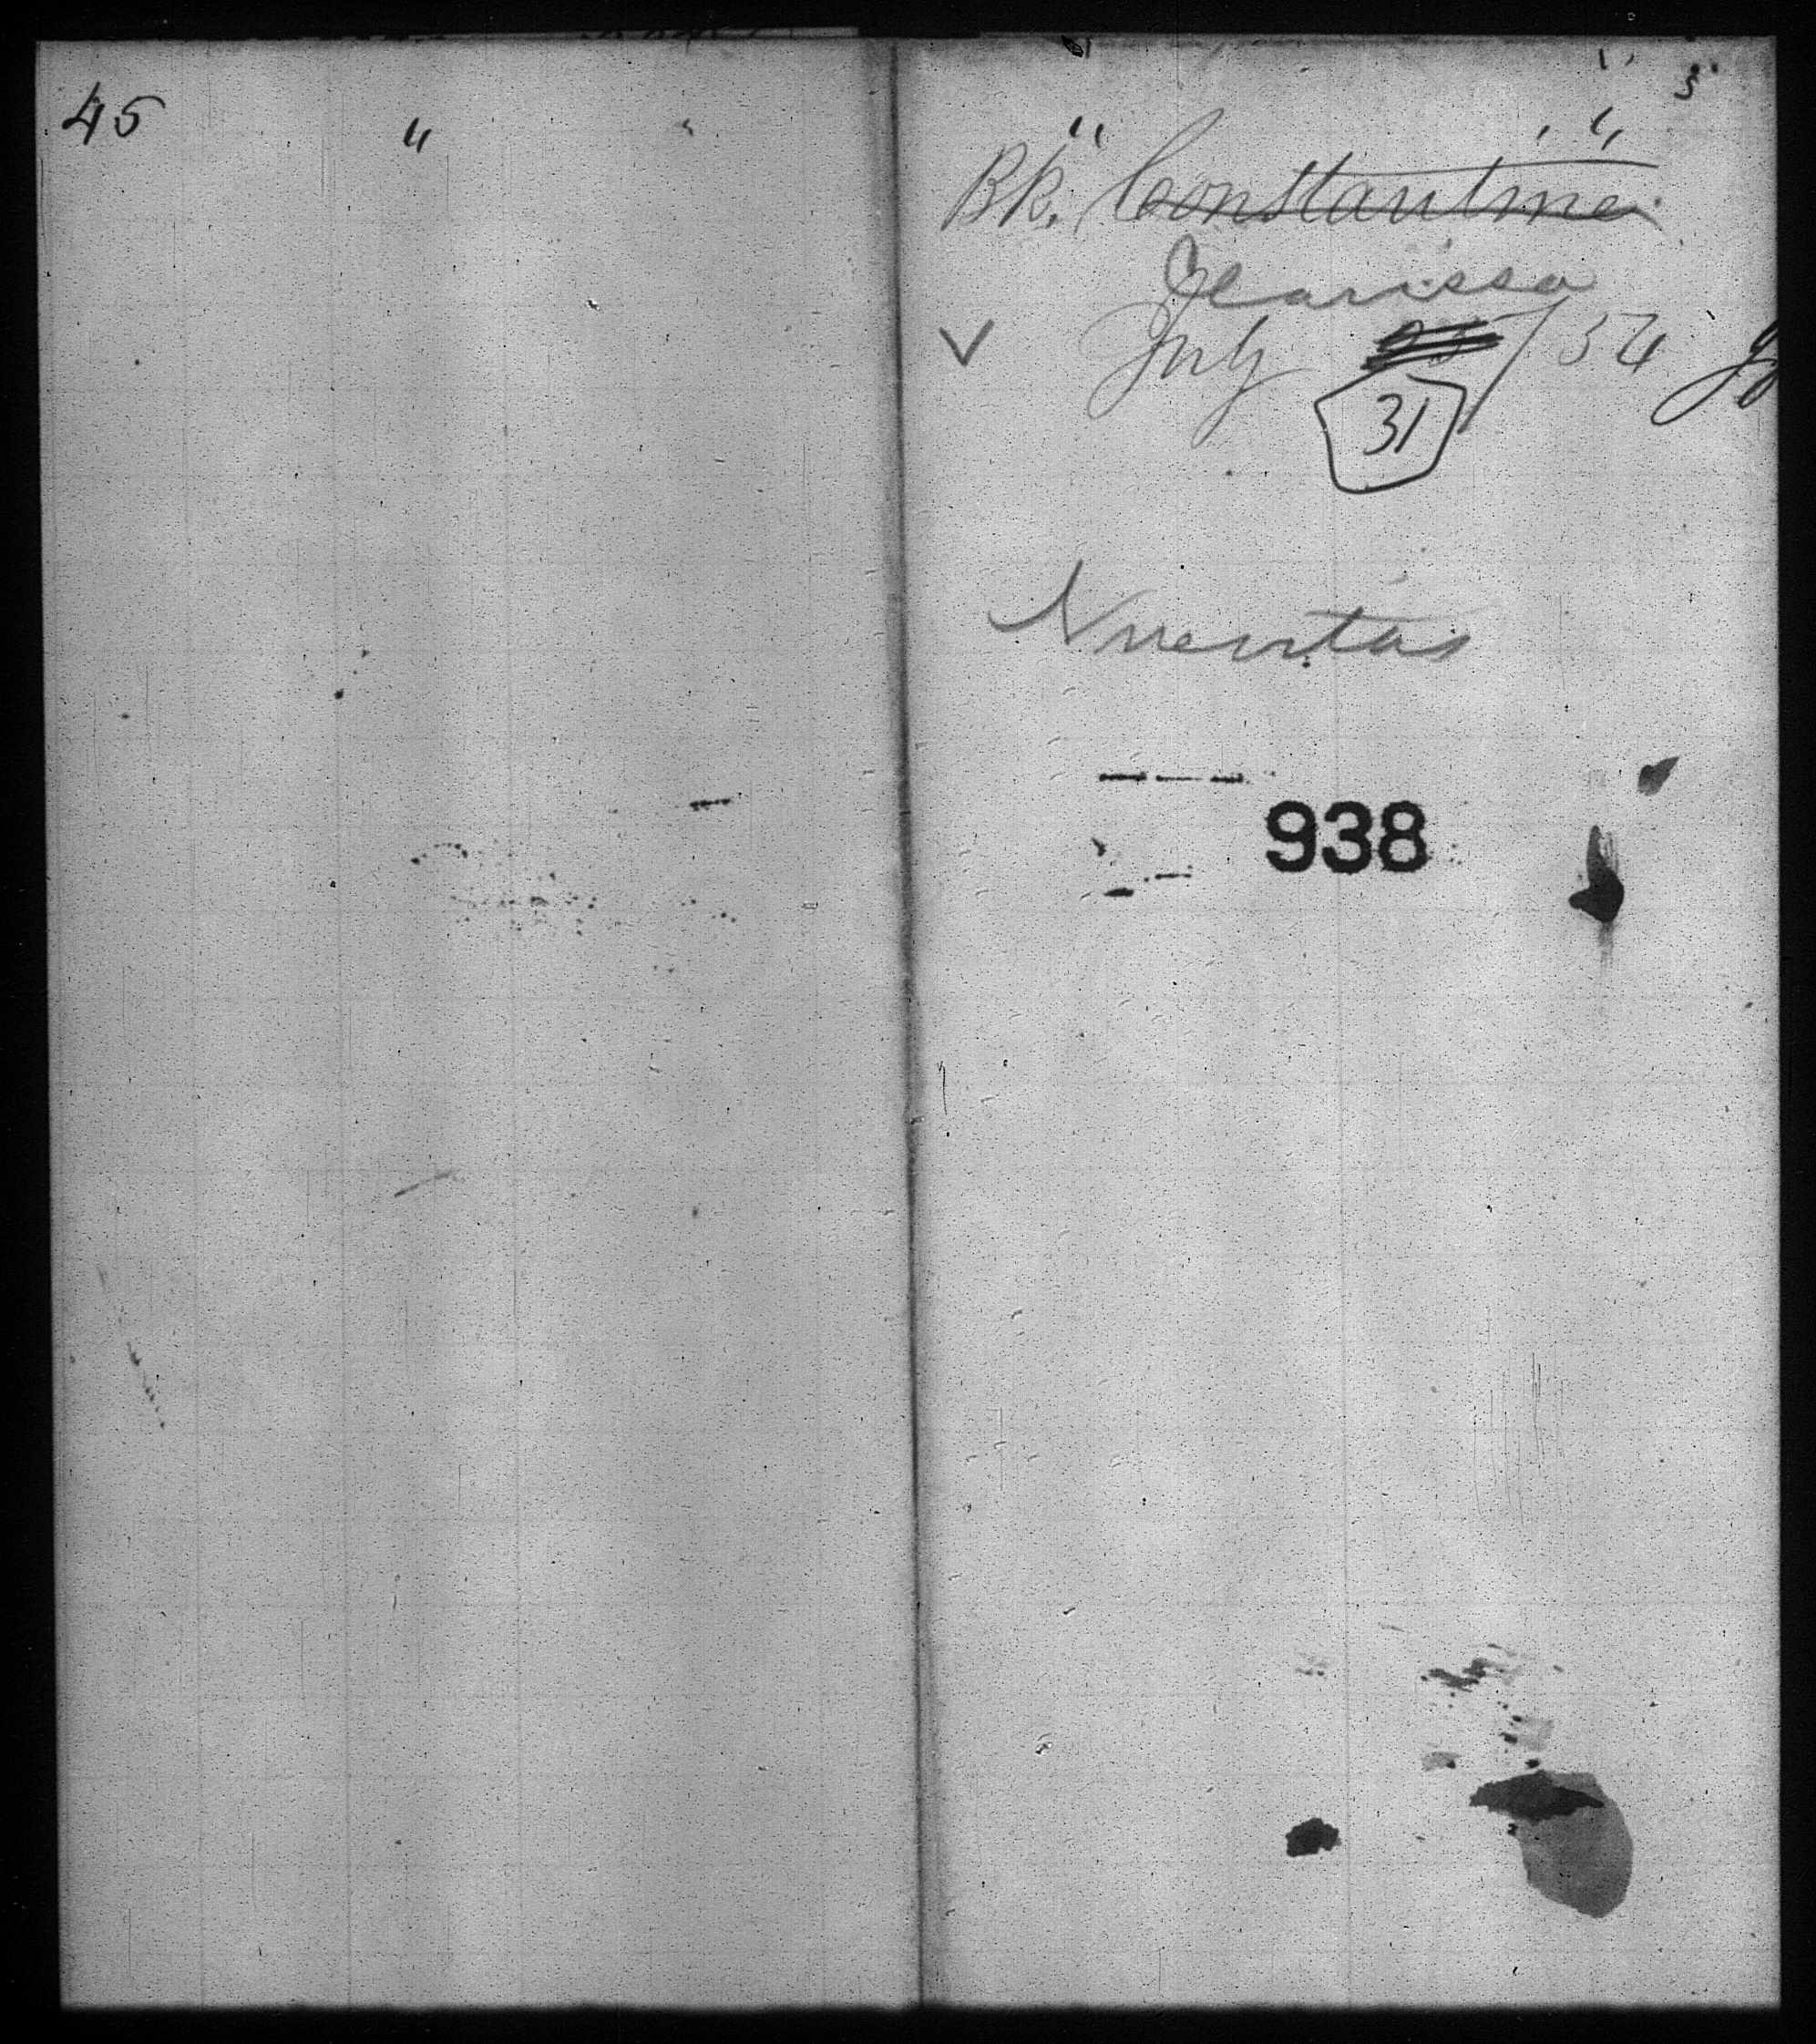 45 " "
" "
Bk. Constantine
Clarissa
July 25/54
31
Nuevitas
938